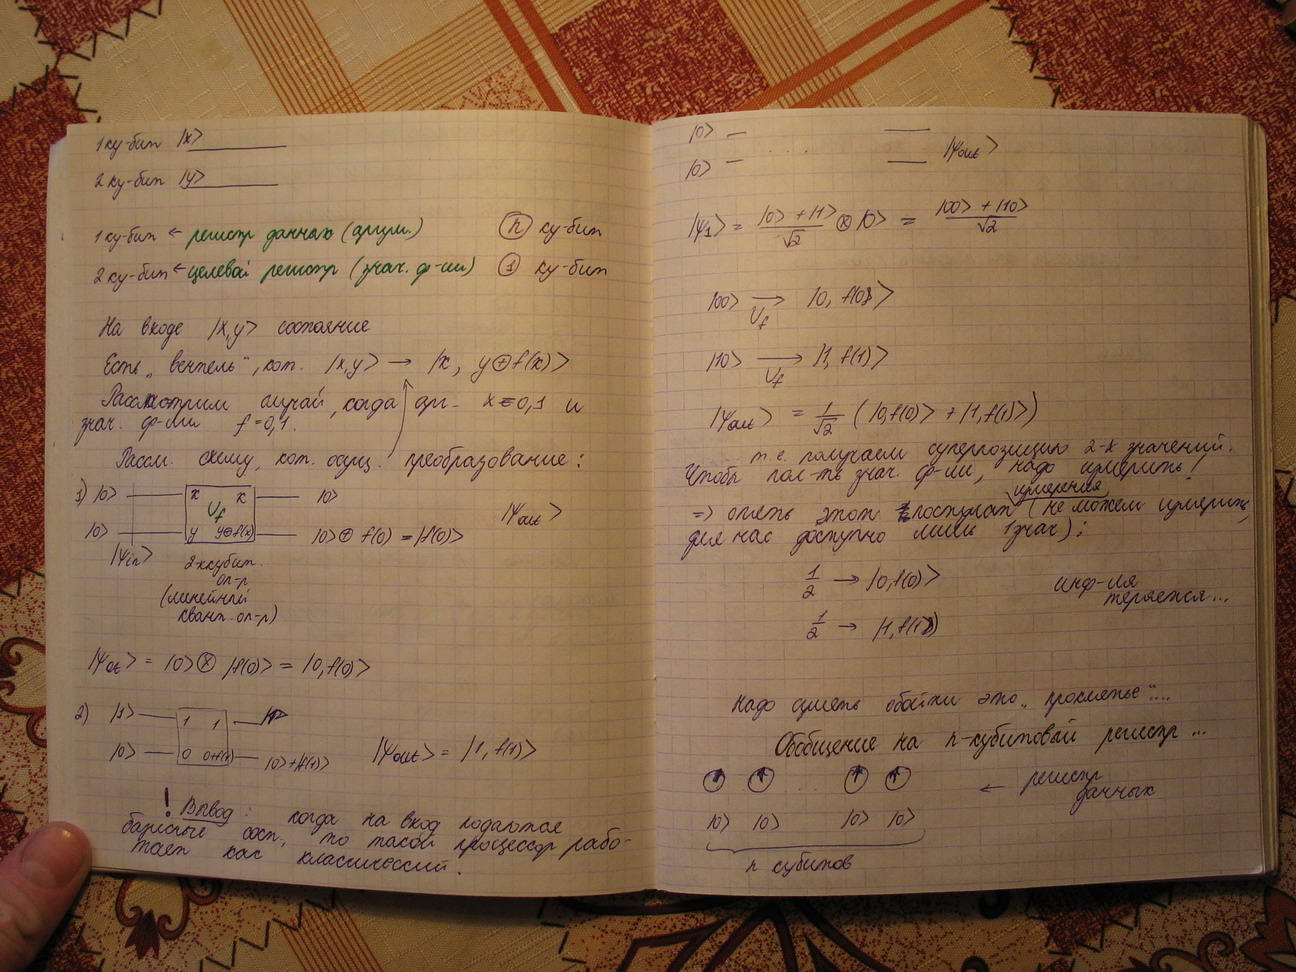 1 ку-бит |x>
2 ку-бит |y>
1 ку-бит ← регистр данных (аргум.) (n) ку-бит
2 ку-бит ← целевой регистр (знач. ф-ии) (1) ку-бит
На входе |x,y> состояние
Есть „вентель", кот. |x,y> → |x, y⊕f(x)>
Рассмотрим случай, когда арг- x=0,1 и
знач. ф-ии f=0,1.
Рассм. схему, кот. осущ. преобразование:
1) |0> x x |0>
U_f
|0> y y⊕f(x) |0>⊕f(0) = |f(0)> |ψout>
|ψin> 2хкубит.
оп-р
(линейный
квант. оп-р)
|ψout> = |0>⊗|f(0)> = |0,f(0)>
2) |1> 1 1 |1>
|0> 0 0+f(x) |0>+|f(1)> |ψout> = |1,f(1)>
! Вывод: когда на вход подаются
базисные сост., то такой процессор рабо-
тает как классический.
|0> – . . . –
|0> – – |ψout>
|ψ1> = |0>+|1>/√2 ⊗ |0> = |00>+|10>/√2
|00> →U_f |0, f(0)>
|10> →U_f |1, f(1)>
|ψout> = 1/√2 (|0,f(0)> + |1,f(1)>)
т.е. получаем суперпозицию 2-х значений.
Чтобы пол-ть знач. ф-ии, надо измерить!
измерения
=> опять этот постулат (не можем измерить,
для нас доступно лишь 1 знач):
1/2 → |0,f(0)> инф-ия
теряется...
1/2 → |1,f(1)>
Надо суметь обойти это „проклятье"....
Обобщение на n-кубитовый регистр ...
. . . ← регистр
данных
|0> |0> |0> |0>
n кубитов